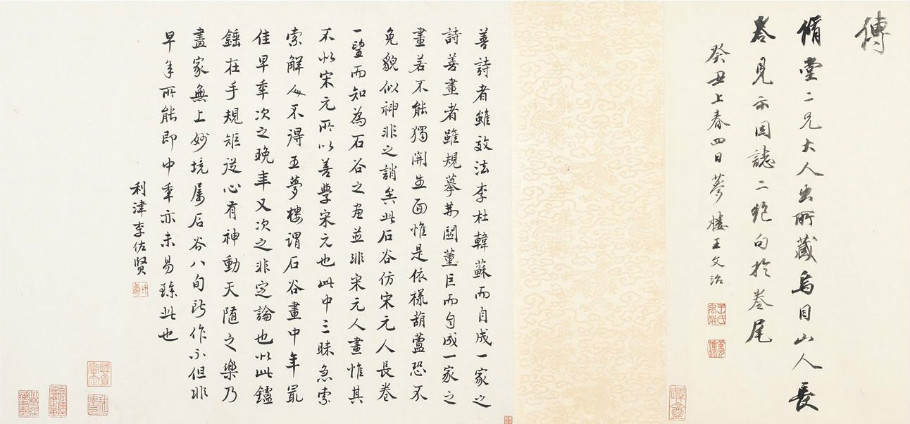 傳
脩堂二兄大人出所藏烏目山人長
卷見示因誌二絕句於卷尾
癸丑上春四日夢樓王文治
善詩者雖效法李杜韓蘇而自成一家之
詩善畫者雖規摹荊關董巨而自成一家之
畫若不能獨開生面惟是依樣葫蘆恐不
免貌似神非之誚矣此石谷仿宋元人長卷
一望而知為石谷之畫並非宋元人畫惟其
不似宋元所以善學宋元也此中三昧急索
索解人不得王夢樓謂石谷畫中年最
佳早年次之晚年又次之非定論也此鑪
錘在手規矩從心有神動天隨之樂乃
畫家無上妙境屬石谷八旬所作不但非
早年所能即中年亦未易臻此也
利津李佐賢